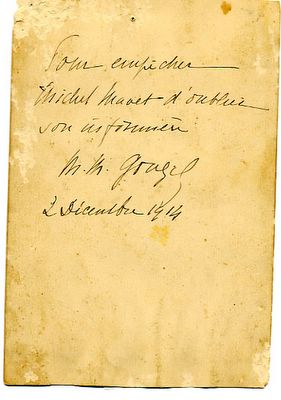 Pour empêcher
Michel Mavet d'oublier
son infirmière
M. M. Gouzel
2 Décembre 1914